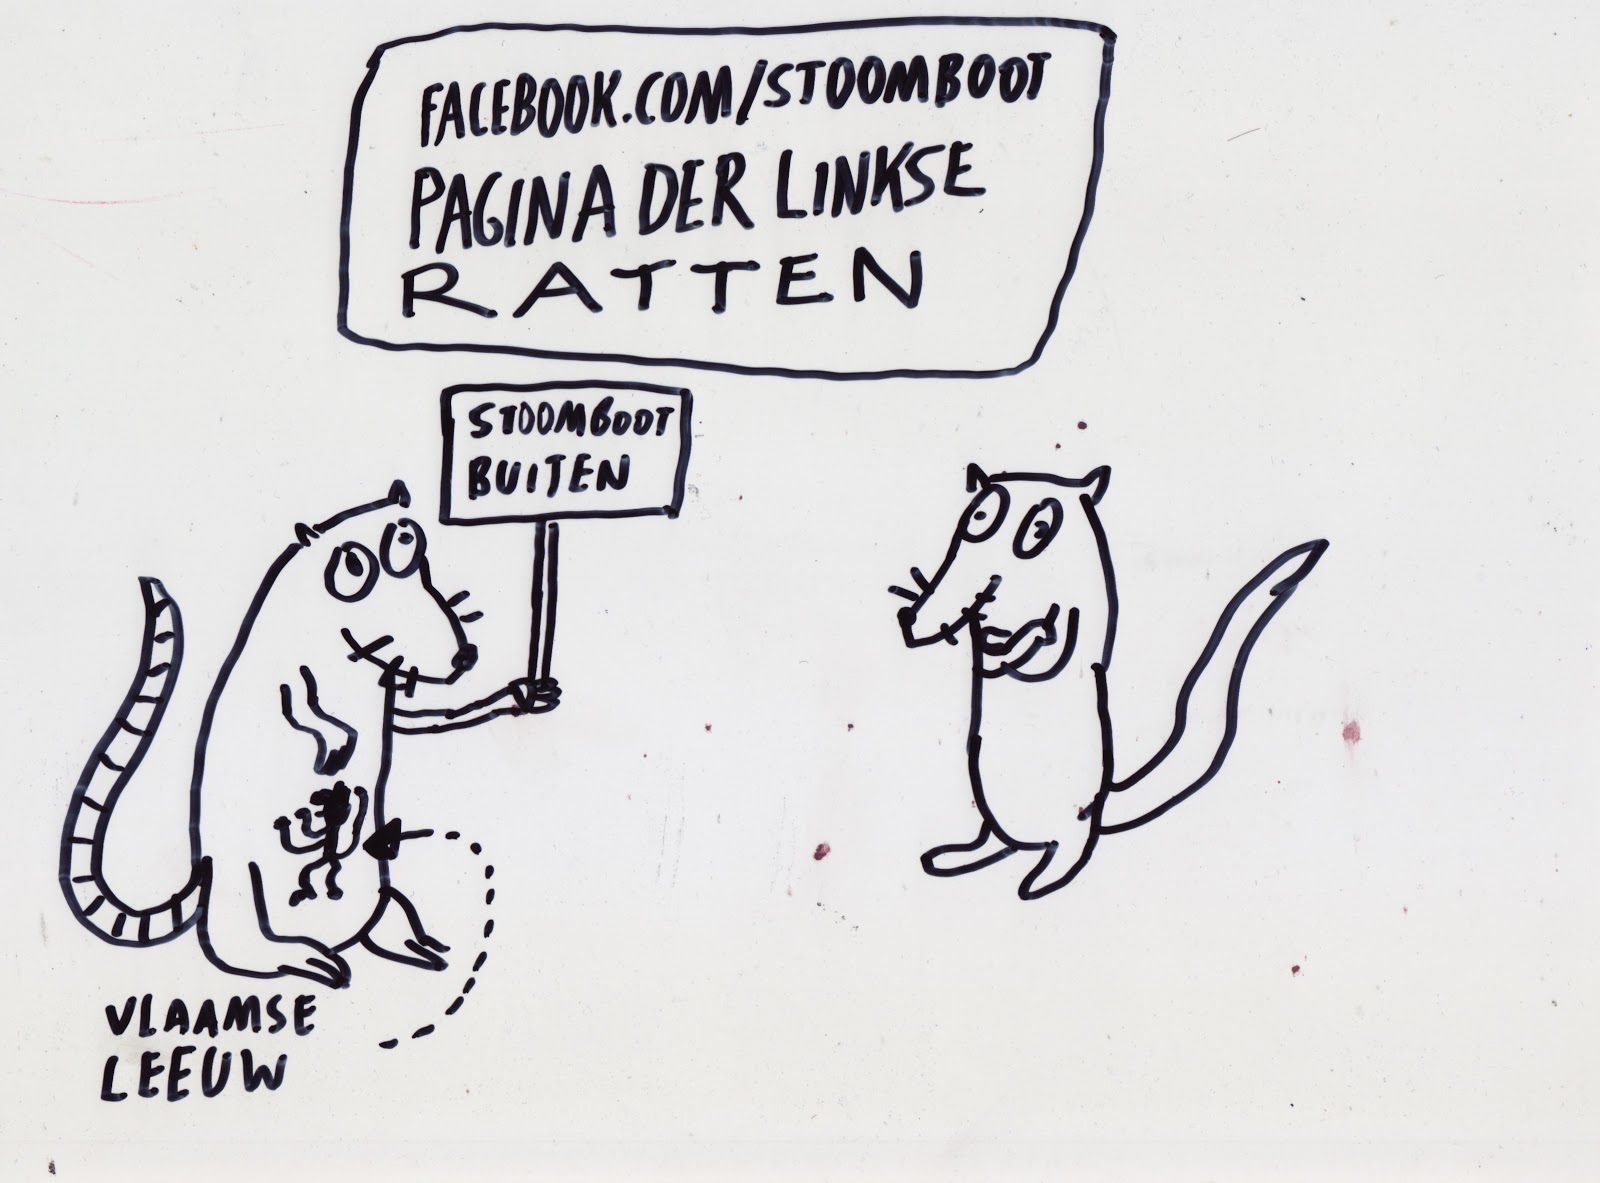 FACEBOOK.COM/STOOMBOOT
PAGINA DER LINKSE
RATTEN
STOOMBOOT
BUITEN
VLAAMSE
LEEUW